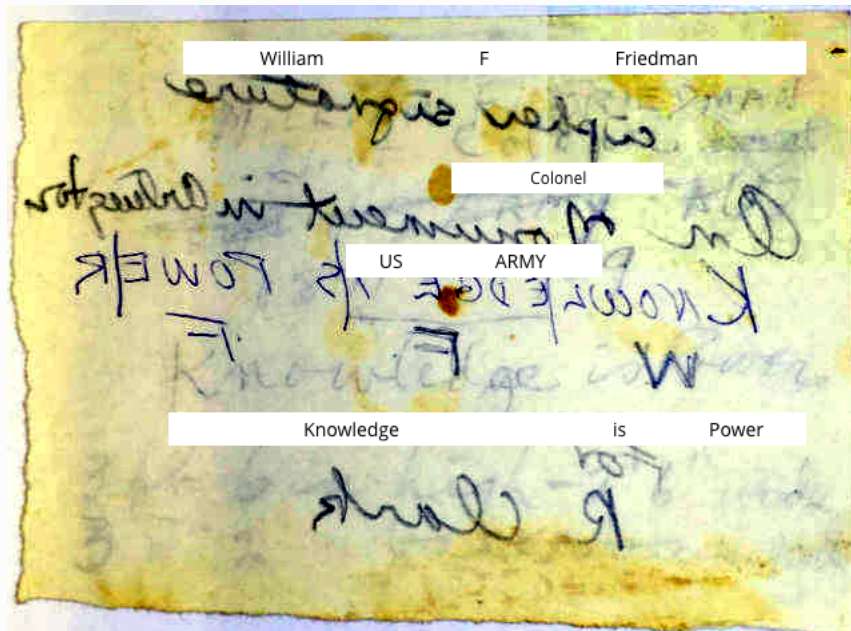 William F Friedman
cipher signature
Colonel
On Monument in Arlington
US ARMY
KNOWL/EDGE I/S POWE/R
W F F
Knowledge is Power
Knowledge is Power
For
R Clark